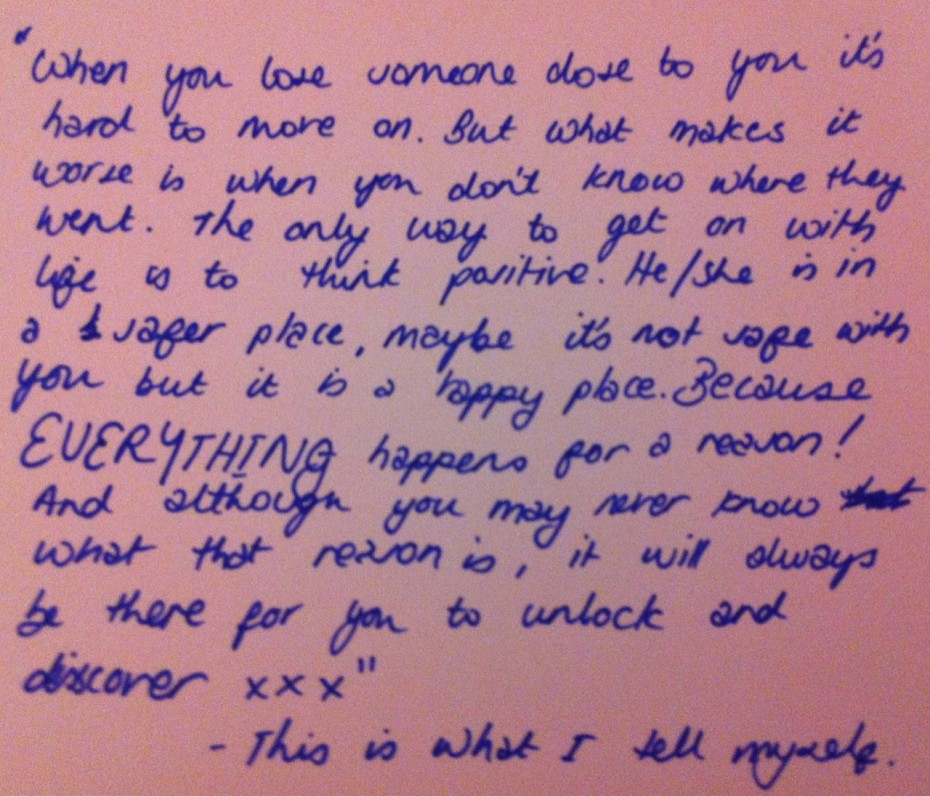 "When you lose someone close to you it's
hard to move on. But what makes it
worse is when you don't know where they
went. The only way to get on with
life is to think positive. He/she is in
a safer place, maybe it's not safe with
you but it is a happy place. Because
EVERYTHING happens for a reason!
And although you may never know that
what that reason is, it will always
be there for you to unlock and
discover xxx"
- This is what I tell myself.